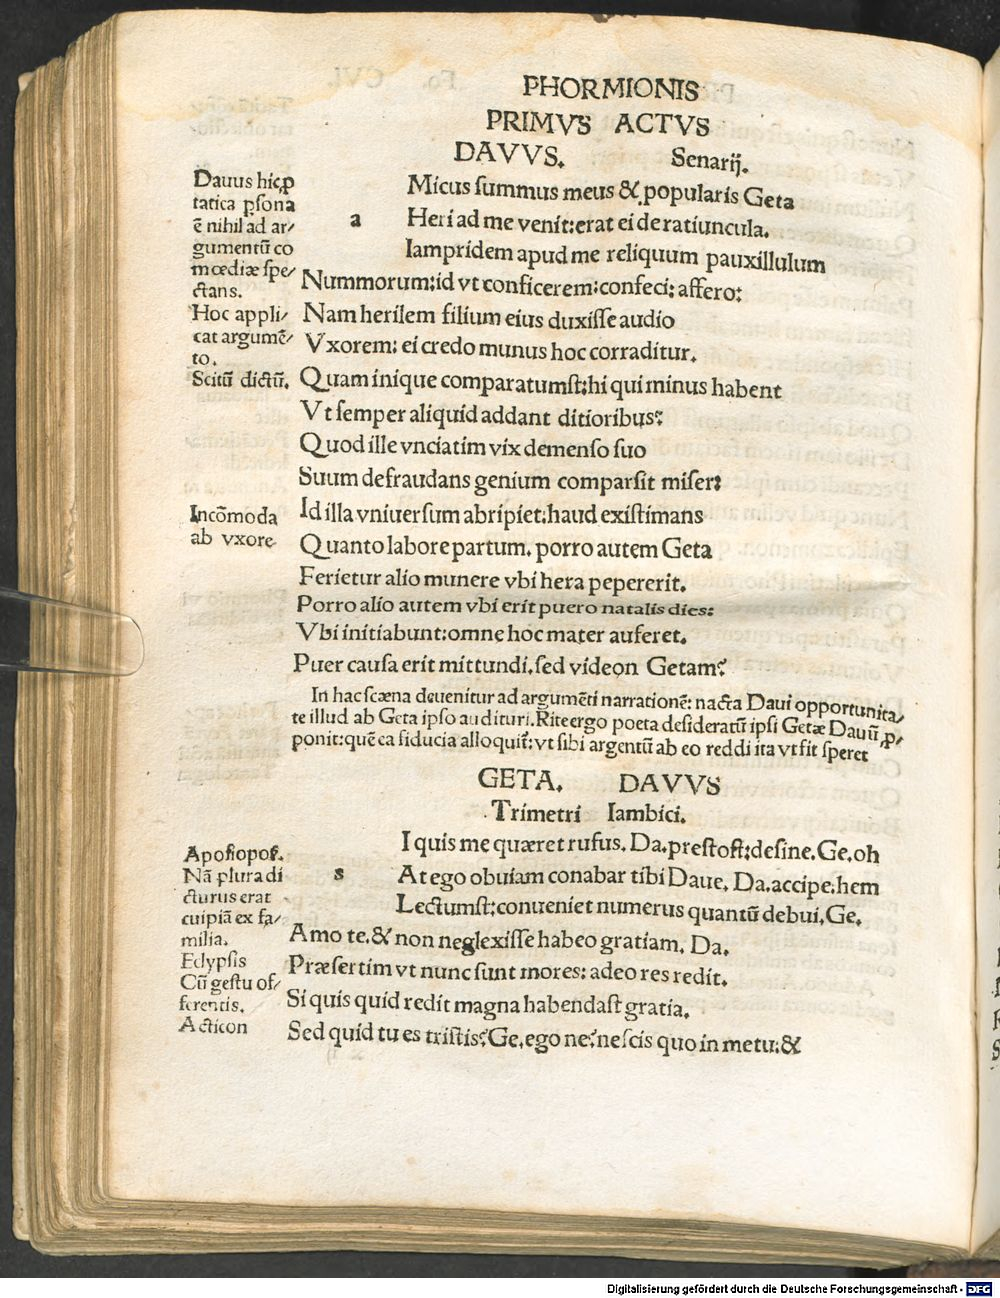 PHORMIONIS
PRIMVS ACTVS
DAVVS. Senarij.
Micus summus meus & popularis Geta
a Heri ad me venit:erat ei de ratiuncula.
Iampridem apud me reliquum pauxillulum
Nummorum:id vt conficerem:confeci: affero:
Nam herilem filium eius duxisse audio
Vxorem: ei credo munus hoc corraditur.
Quam inique comparatumst:hi qui minus habent
Vt semper aliquid addant ditioribus?
Quod ille vnciatim vix demenso suo
Suum defraudans genium comparsit miser:
Id illa vniuersum abripiet:haud existimans
Quanto labore partum. porro autem Geta
Ferietur alio munere vbi hera pepererit.
Porro alio autem vbi erit puero natalis dies:
Vbi initiabunt:omne hoc mater auferet.
Puer causa erit mittundi.sed videon Getam?
Dauus hic ꝓ
tatica ꝑsona
ē nihil ad ar/
gumentū co
mœdiæ spe/
ctans.
Hoc appli/
cat argumē/
to.
Scitū dictū.
Incōmoda
ab vxore
In hac scæna deuenitur ad argumēti narrationē: nacta Daui opportunita/
te illud ab Geta ipso audituri.Rite ergo poeta desideratū ipsi Getæ Dauū ꝓ/
ponit:quē ea fiducia alloquit᷑:vt sibi argentū ab eo reddi ita vt fit speret
GETA. DAVVS
Trimetri Iambici.
I quis me quæret rufus. Da.prestost:desine.Ge.oh
s At ego obuiam conabar tibi Daue. Da.accipe:hem
Lectumst:conueniet numerus quantū debui.Ge.
Amo te.& non neglexisse habeo gratiam. Da.
Præsertim vt nunc sunt mores: adeo res redit.
Si quis quid redit magna habendast gratia.
Sed quid tu es tristis?Ge.ego ne?nescis quo in metu:&
Aposiopos.
Nā plura di
cturus erat
cuipiā ex fa/
milia.
Eclypsis
Cū gestu of/
ferentis.
Acticon
Digitalisierung gefördert durch die Deutsche Forschungsgemeinschaft - DFG